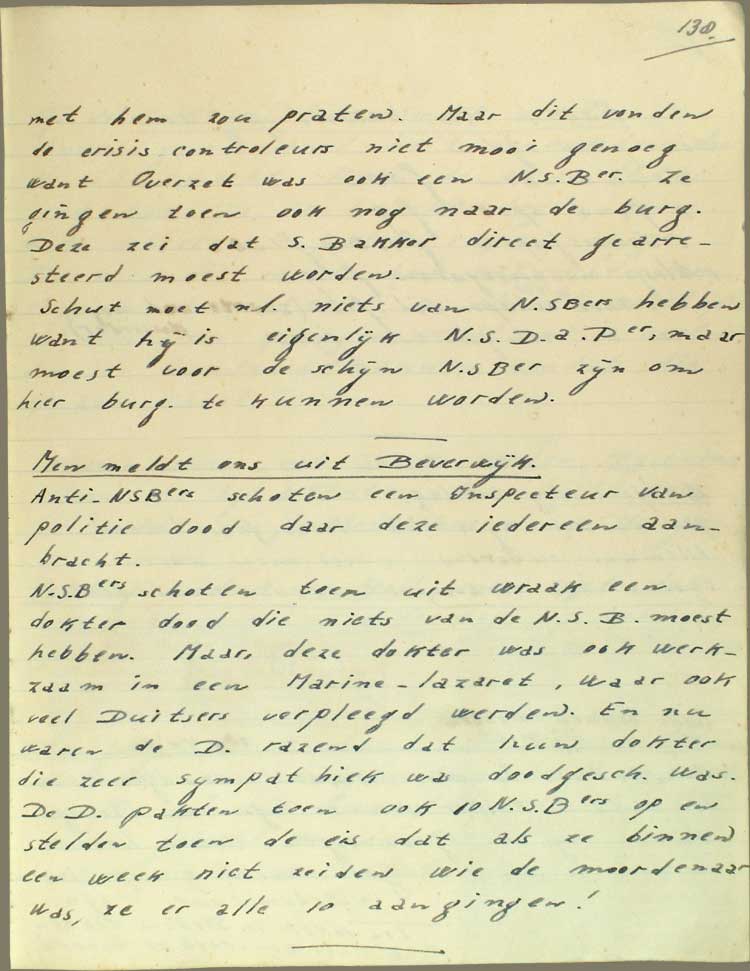 138.
met hem zou praten. Maar dit vonden
de crisis controleurs niet mooi genoeg
want Overzet was ook een N.S.Ber. Ze
gingen toen ook nog naar de burg.
Deze zei dat S. Bakker direct gearre-
steerd moest worden.
Schut moet nl. niets van N.SBers hebben
want hij is eigenlijk N.S.D.a.Per, maar
moest voor de schijn N.SBer zijn om
hier burg. te kunnen worden.
Men meldt ons uit Beverwijk.
Anti-NSBers schoten een Inspecteur van
politie dood daar deze iedereen aan-
bracht.
N.S.Bers schoten toen uit wraak een
dokter dood die niets van de N.S.B. moest
hebben. Maar, deze dokter was ook werk-
zaam in een Marine-lazaret, waar ook
veel Duitsers verpleegd werden. En nu
waren de D. razend dat hun dokter
die zeer sympathiek was doodgesch. was.
De D. pakten toen ook 10 N.S.Bers op en
stelden toen de eis dat als ze binnen
een week niet zeiden wie de moordenaar
was, ze er alle 10 aangingen!